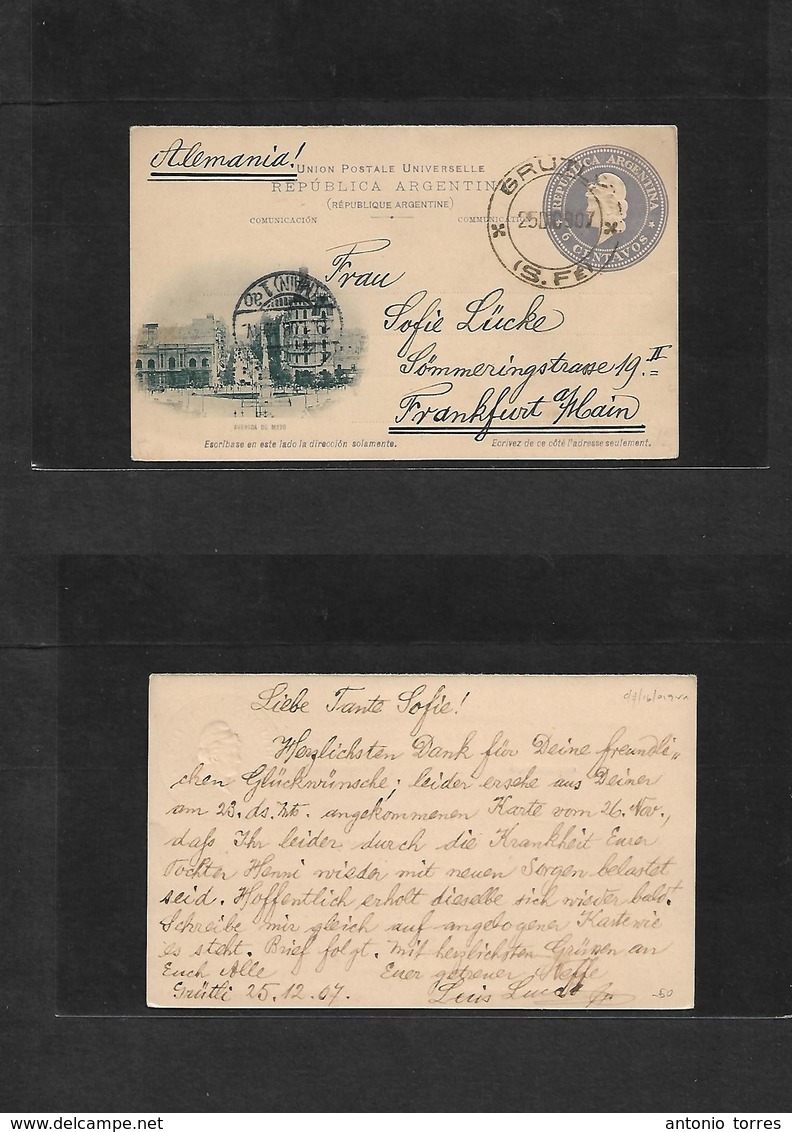 Alemania!
UNION POSTALE UNIVERSELLE
REPÚBLICA ARGENTINA
(RÉPUBLIQUE ARGENTINE)
COMUNICACIÓN
COMMUNICATION
REPUBLICA ARGENTINA
6 CENTAVOS
25DIC907
(S.FÉ)
(MAIN) 1
Frau
Sofie Lücke
Sömmeringstrasse 19 II
Frankfurt a/Main
AVENIDA DE MAYO
Escríbase en este lado la dirección solamente.
Ecrivez de ce côté l'adresse seulement.
Liebe Tante Sofie!
Herzlichsten Dank für Deine freundli-
chen Glückwünsche; leider ersehe aus Deiner
am 23. ds. Mts. angekommenen Karte vom 26. Nov.,
daſs Ihr leider durch die Krankheit Eurer
Tochter Henni wieder mit neuen Sorgen belastet
seid. Hoffentlich erholt dieselbe sich wieder bald!
Schreibe mir gleich auf angebogener Karte wie
es steht. Brief folgt. Mit herzlichsten Grüssen an
Euch Alle Euer getreuer Neffe
Grütli 25.12.07. Luis
-50
antonio torres